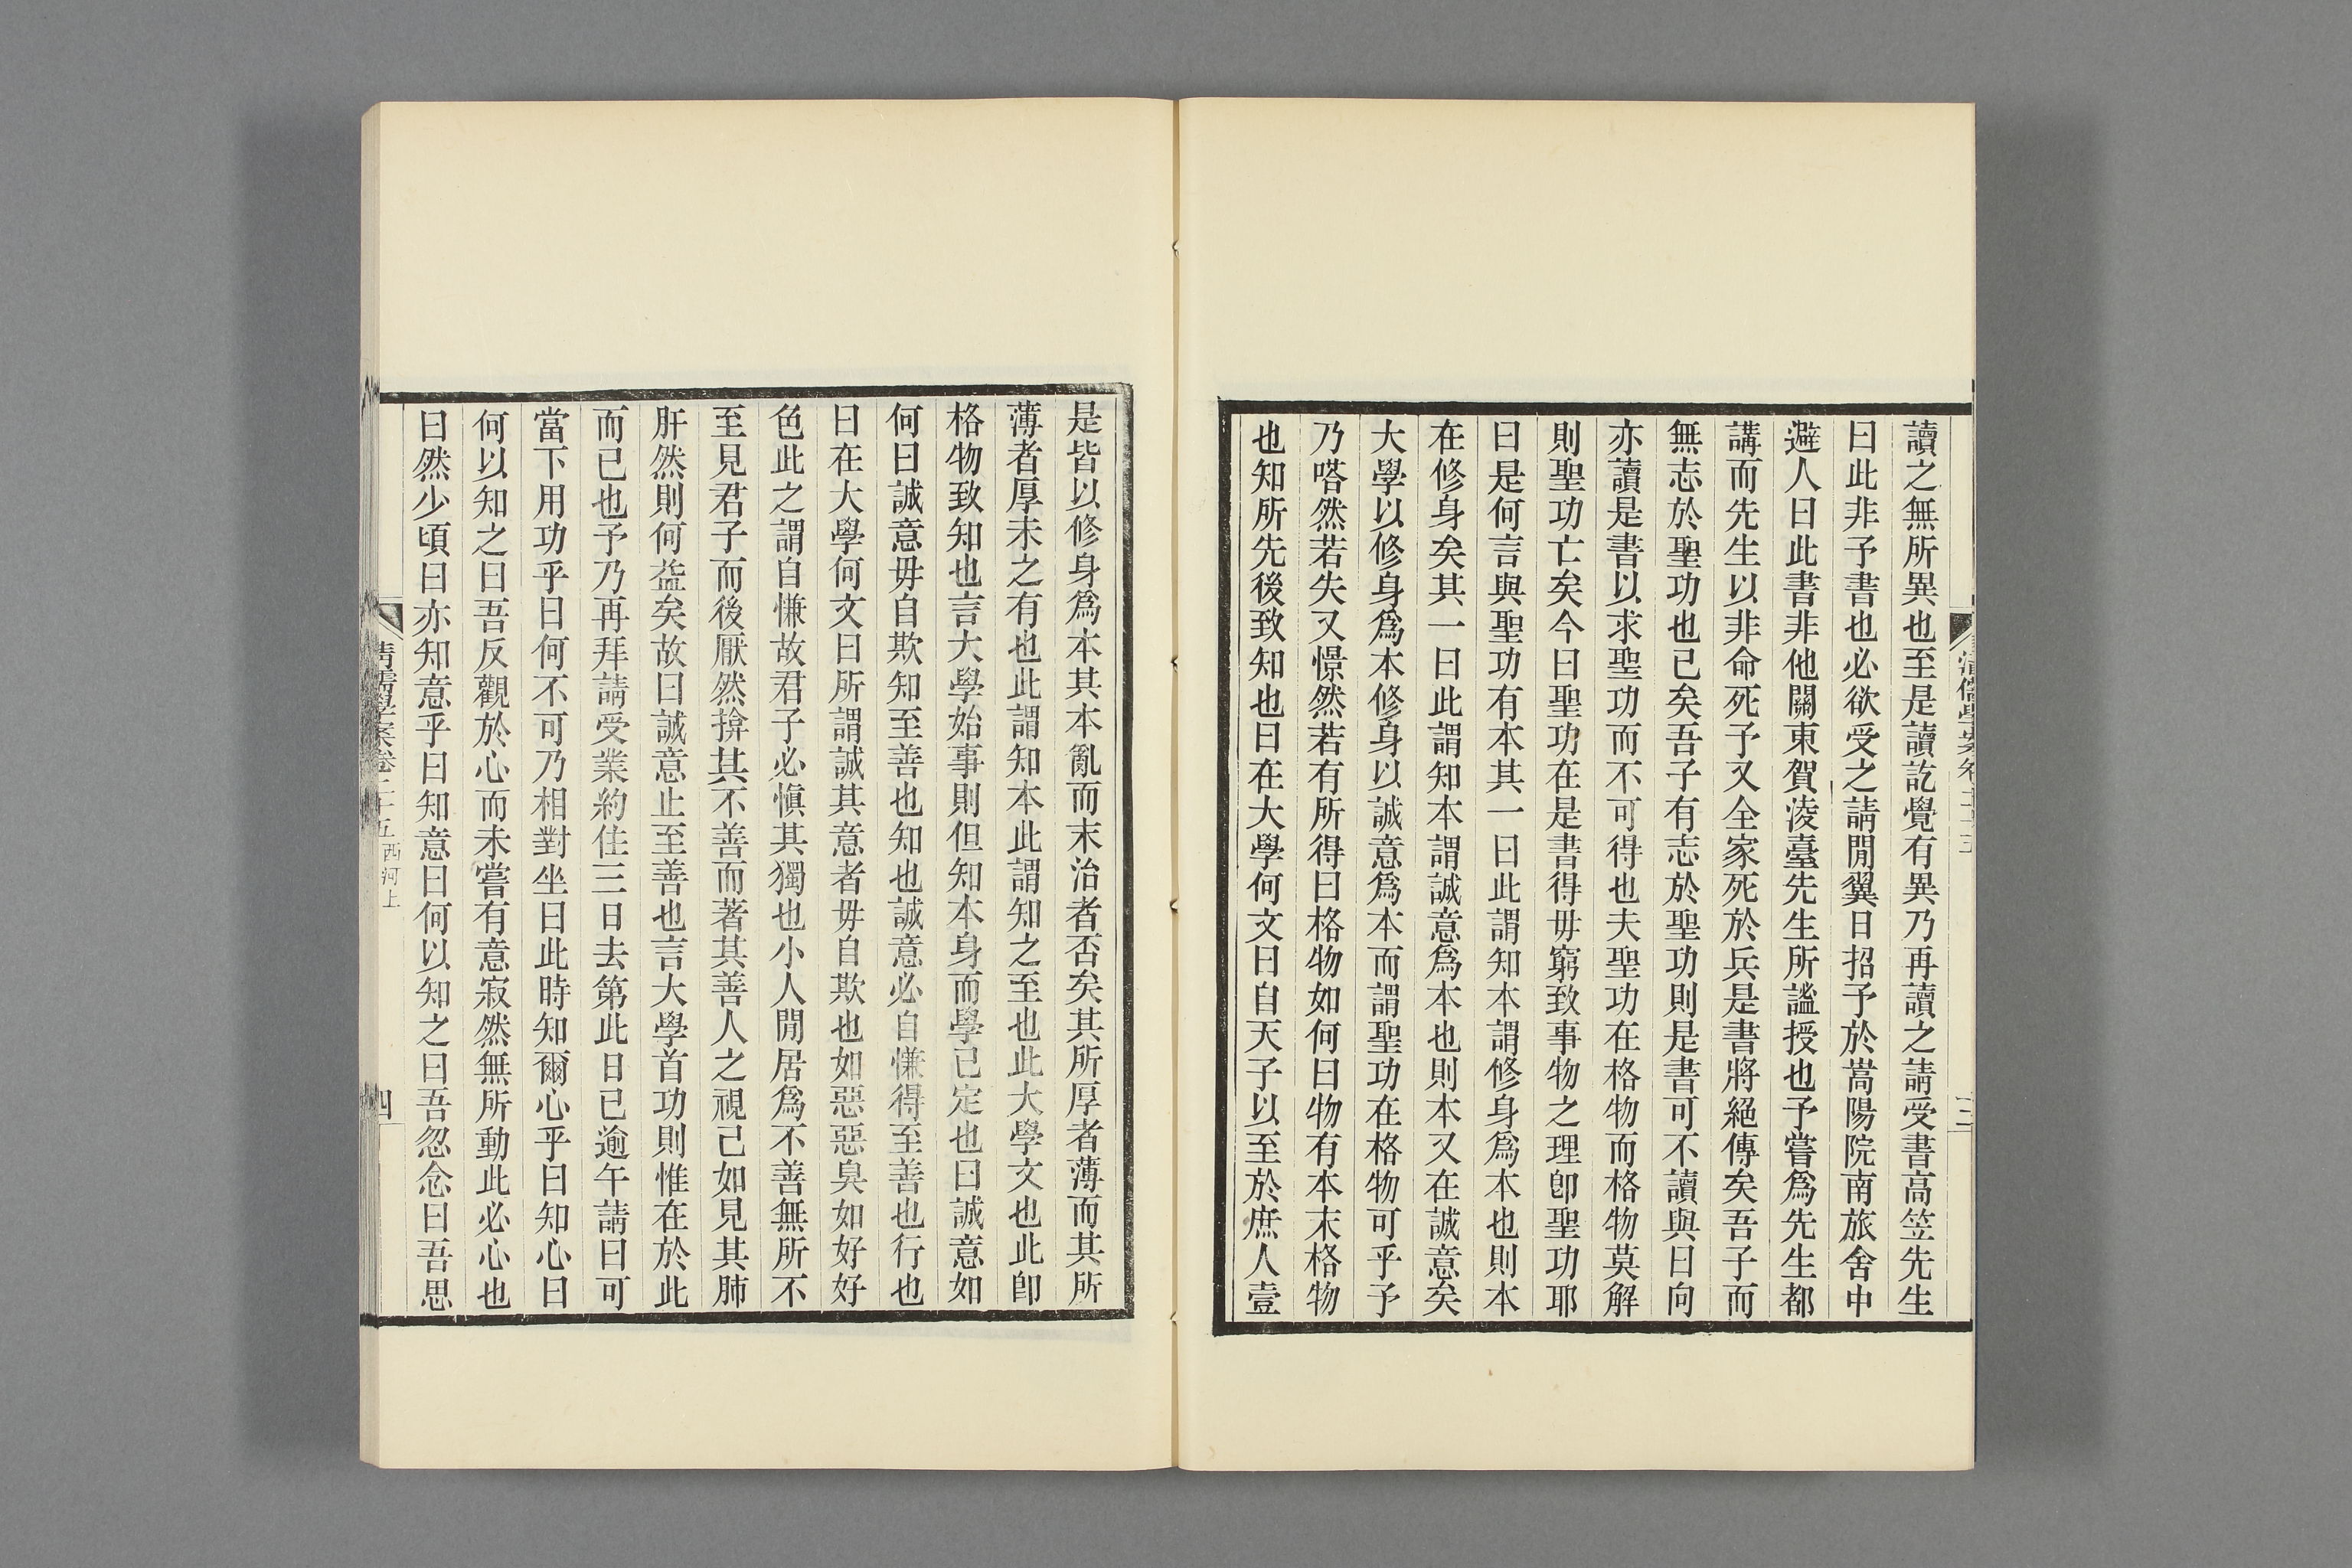 讀之無所異也至是讀訖覺有異乃再讀之請受書高笠先生
曰此非予書也必欲受之請閒翼日招予於嵩陽院南旅舍中
避人曰此書非他關東賀淩臺先生所謐授也予嘗爲先生都
講而先生以非命死予又全家死於兵是書將絕傳矣吾子而
無志於聖功也已矣吾子有志於聖功則是書可不讀與日向
亦讀是書以求聖功而不可得也夫聖功在格物而格物莫解
則聖功亡矣今日聖功在是書得毋窮致事物之理卽聖功耶
曰是何言與聖功有本其一曰此謂知本謂修身爲本也則本
在修身矣其一曰此謂知本謂誠意爲本也則本又在誠意矣
大學以修身爲本修身以誠意爲本而謂聖功在格物可乎予
乃嗒然若失又憬然若有所得曰格物如何曰物有本末格物
也知所先後致知也曰在大學何文曰自天子以至於庶人壹
是皆以修身爲本其本亂而末治者否矣其所厚者薄而其所
薄者厚未之有也此謂知本此謂知之至也此大學文也此卽
格物致知也言大學始事則但知本身而學已定也曰誠意如
何曰誠意毋自欺知至善也知也誠意必自慊得至善也行也
曰在大學何文曰所謂誠其意者毋自欺也如惡惡臭如好好
色此之謂自慊故君子必愼其獨也小人閒居爲不善無所不
至見君子而後厭然揜其不善而著其善人之視己如見其肺
肝然則何益矣故曰誠意止至善也言大學首功則惟在於此
而已也予乃再拜請受業約住三日去第此日已逾午請曰可
當下用功乎曰何不可乃相對坐曰此時知爾心乎曰知心曰
何以知之曰吾反觀於心而未嘗有意寂然無所動此必心也
曰然少頃曰亦知意乎曰知意曰何以知之曰吾忽念曰吾思
清儒學案卷二十五西河上
四